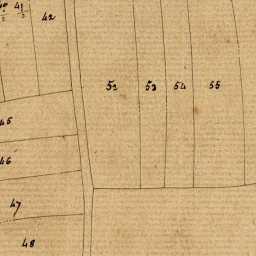 41
42
52 53 54 55
45
46
47
48